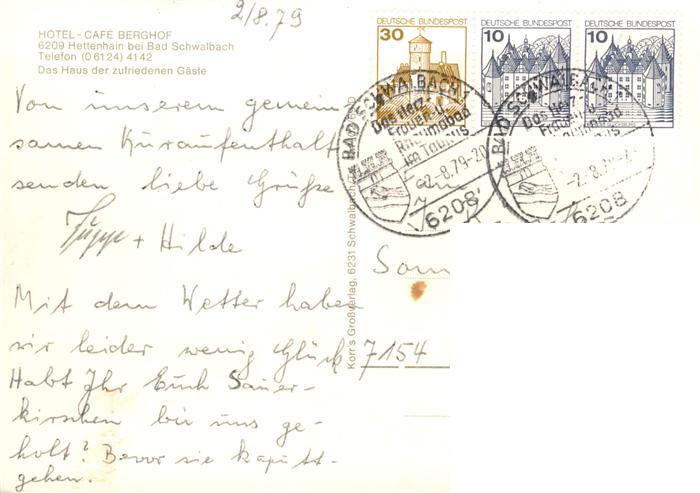 2/8.79
HOTEL - CAFÉ BERGHOF
6209 Hettenhain bei Bad Schwalbach
Telefon (06124) 4142
Das Haus der zufriedenen Gäste
Von unserem gemein
samen Kuraufenthalt
senden liebe Grüße
+ Hilde
Mit dem Wetter haben
wir leider wenig Glück
Habt Ihr Euch Sauer-
kirschen bei uns ge-
holt? Bevor sie kaputt-
gehen.
Korr's Großverlag, 6231 Schwalbach
DEUTSCHE BUNDESPOST
30
DEUTSCHE BUNDESPOST
10
DEUTSCHE BUNDESPOST
10
BAD SCHWALBACH 1
Das Herz-
Frauen- u.
Rheumabad
im Taunus
-2.-8.79-20
6208
BAD SCHWALBACH
Das Herz-
Frauen- u.
Rheumabad
im Taunus
-2.-8.79
6208
Fam
Som
7154